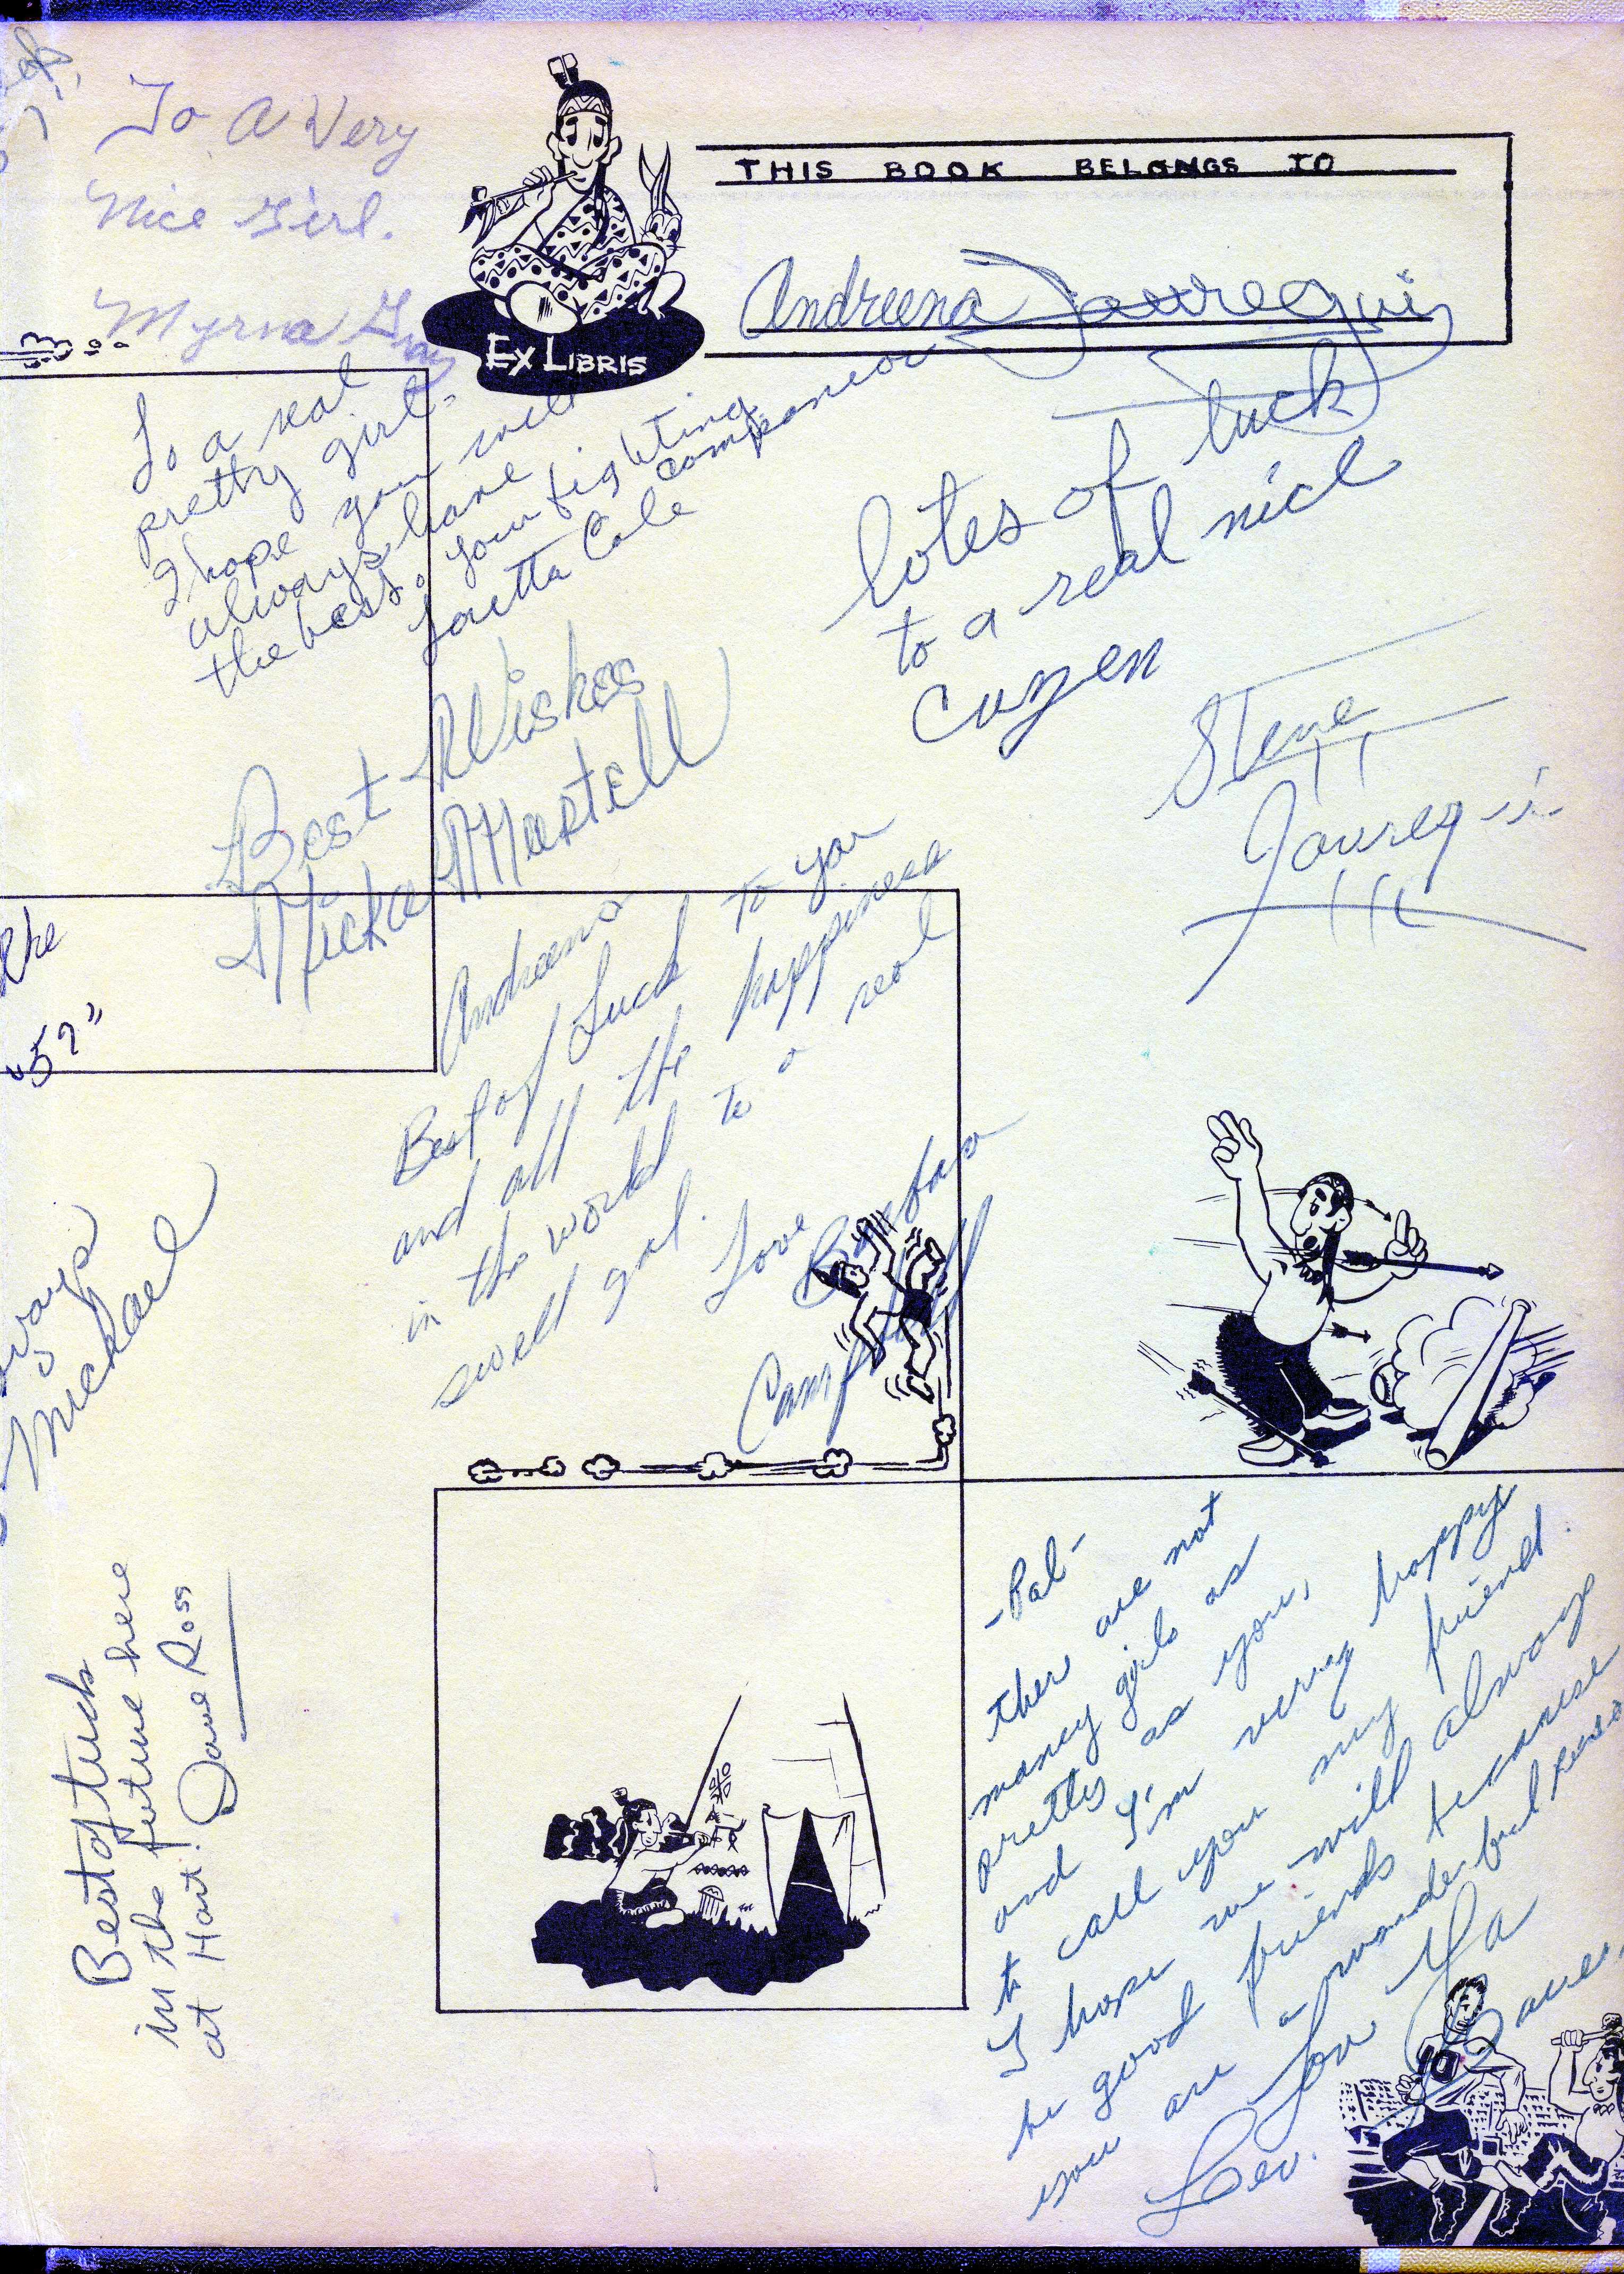 To A Very
Nice Girl.
Myrna Gray
EX LIBRIS
THIS BOOK BELONGS TO
Andreena Jauregui
To a real
pretty girl.
I hope you will
always have
the best. your fighting
companion
Loretta Cole
lotes of luck
to a real nice
cuzen
Steve
Jauregui
Best Wishes
Micke Martell
Andreena
Best of Luck to you
and all the happiness
in the world to a real
swell gal.
Love
Barbara
Campbell
the
"59"
Michael
Best of luck
in the future here
at Hart! Dave Ross
-Pal-
There are not
many girls as
pretty as you,
and I'm very happy
to call you my friend.
I hope we will always
be good friends because
you are a wonderful
Luv Ya